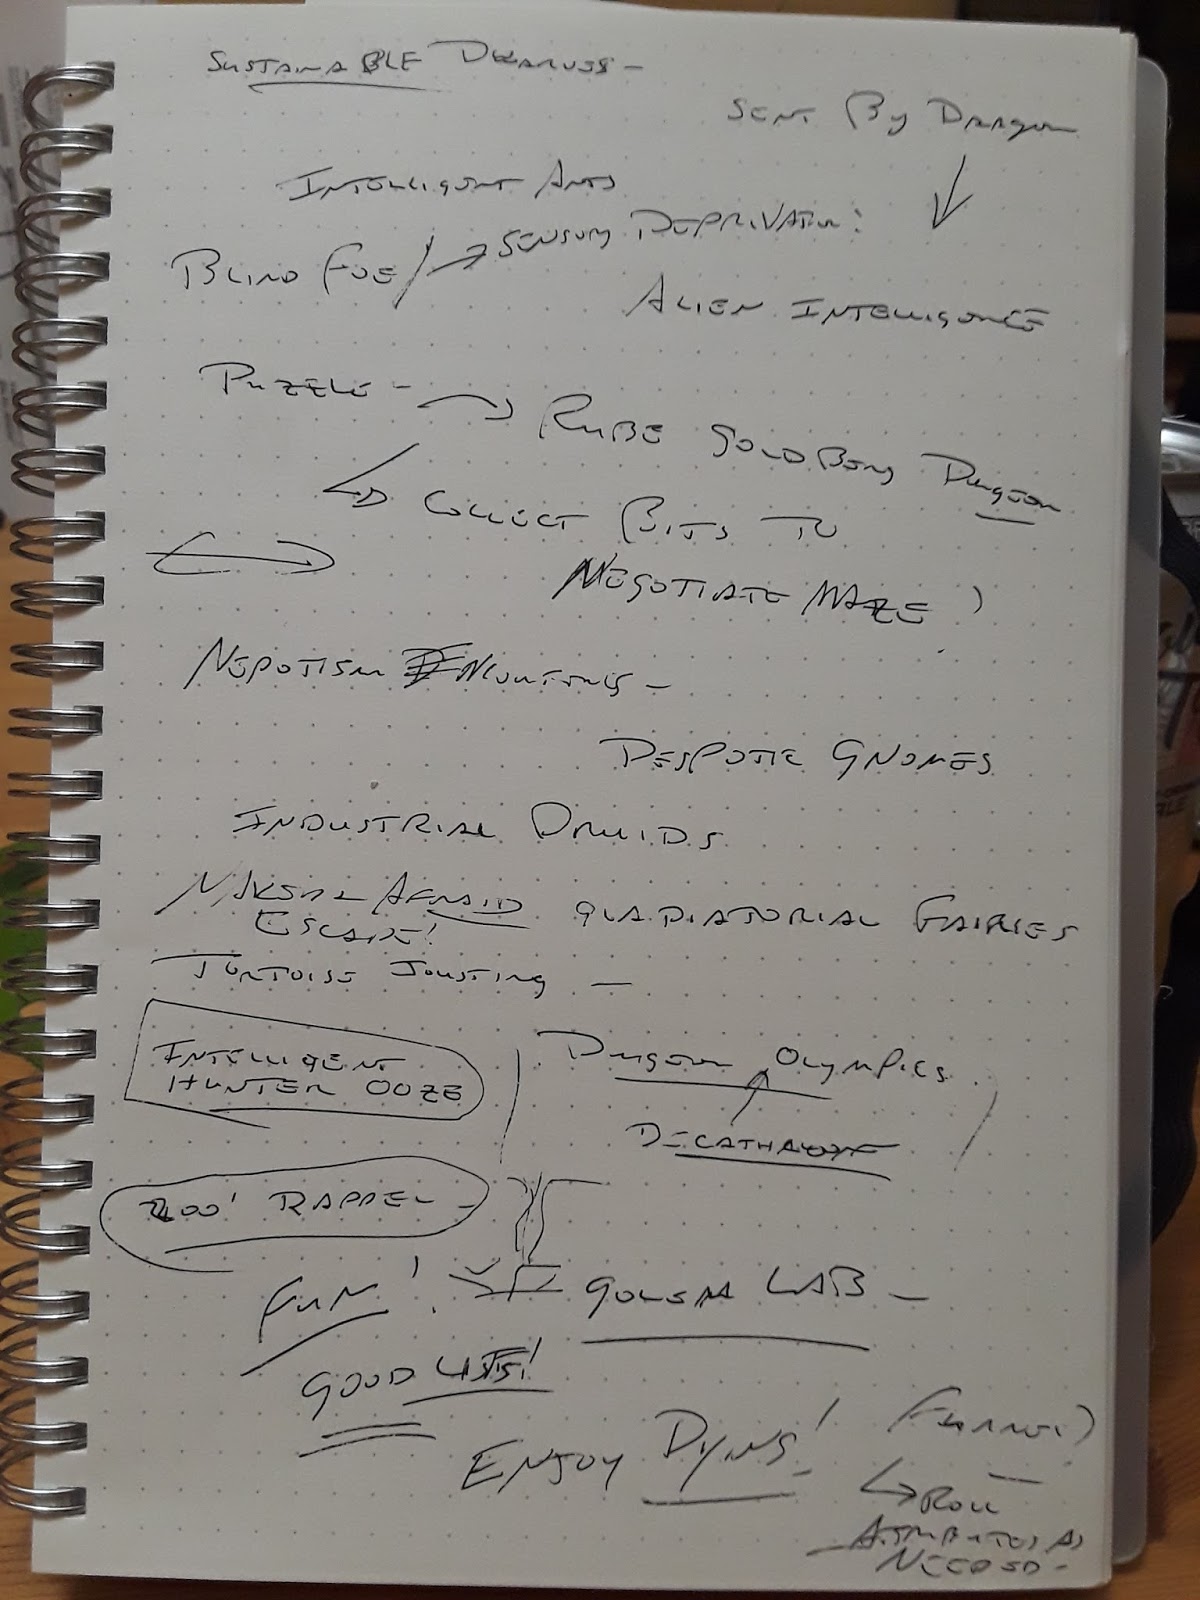 SUSTAINABLE DWARVES -
SENT By DRAGON
INTELLIGENT ANTS
BLIND FOE / → SENSORY DEPRIVATION:
ALIEN INTELLIGENCE
PUZZLE - → RUBE GOLDBERG DUNGEON
COLLECT BITS TO
NEGOTIATE MAZE )
NEPOTISM ENCOUNTERS -
DESPOTIC GNOMES
INDUSTRIAL DRUIDS
NAKED & AFRAID
ESCAPE!
GLADIATORIAL FAIRIES
TORTOISE JOUSTING -
INTELLIGENT
HUNTER OOZE
DUNGEON OLYMPICS
DECATHALON
200' RAPPEL -
FUN!
GOLEM LAB -
GOOD LISTS!
ENJOY DYING! (FUNNEL)
→ ROLL
ATTRIBUTES AS
NEEDED -